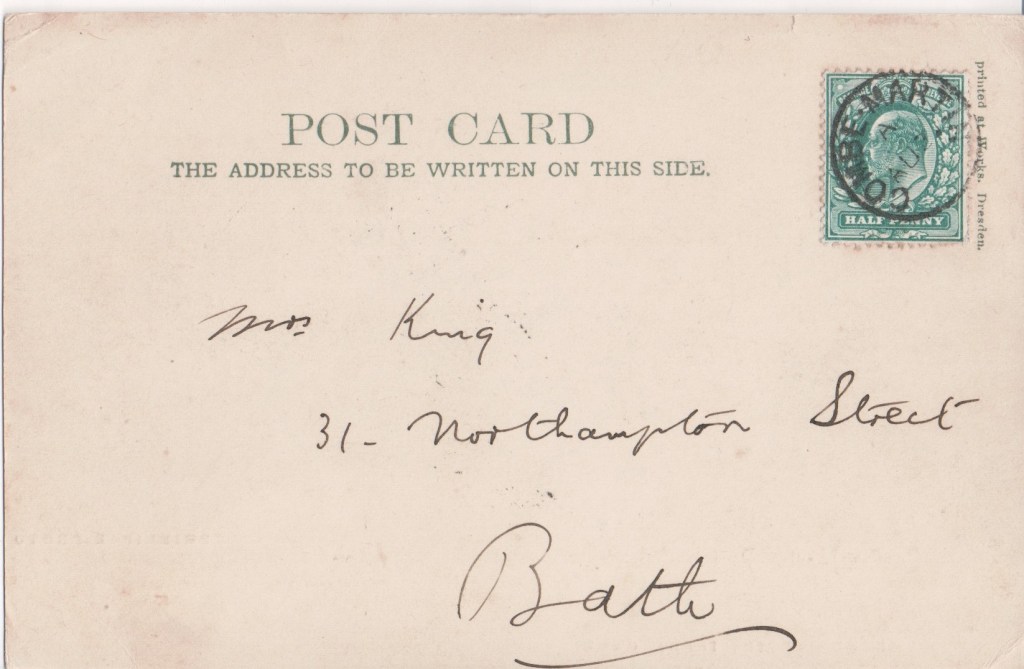 POST CARD
THE ADDRESS TO BE WRITTEN ON THIS SIDE.
COMBE·MARTIN
A
JU
HALF PENNY
printed at Works. Dresden.
Mrs King
31- Northampton Street
Bath